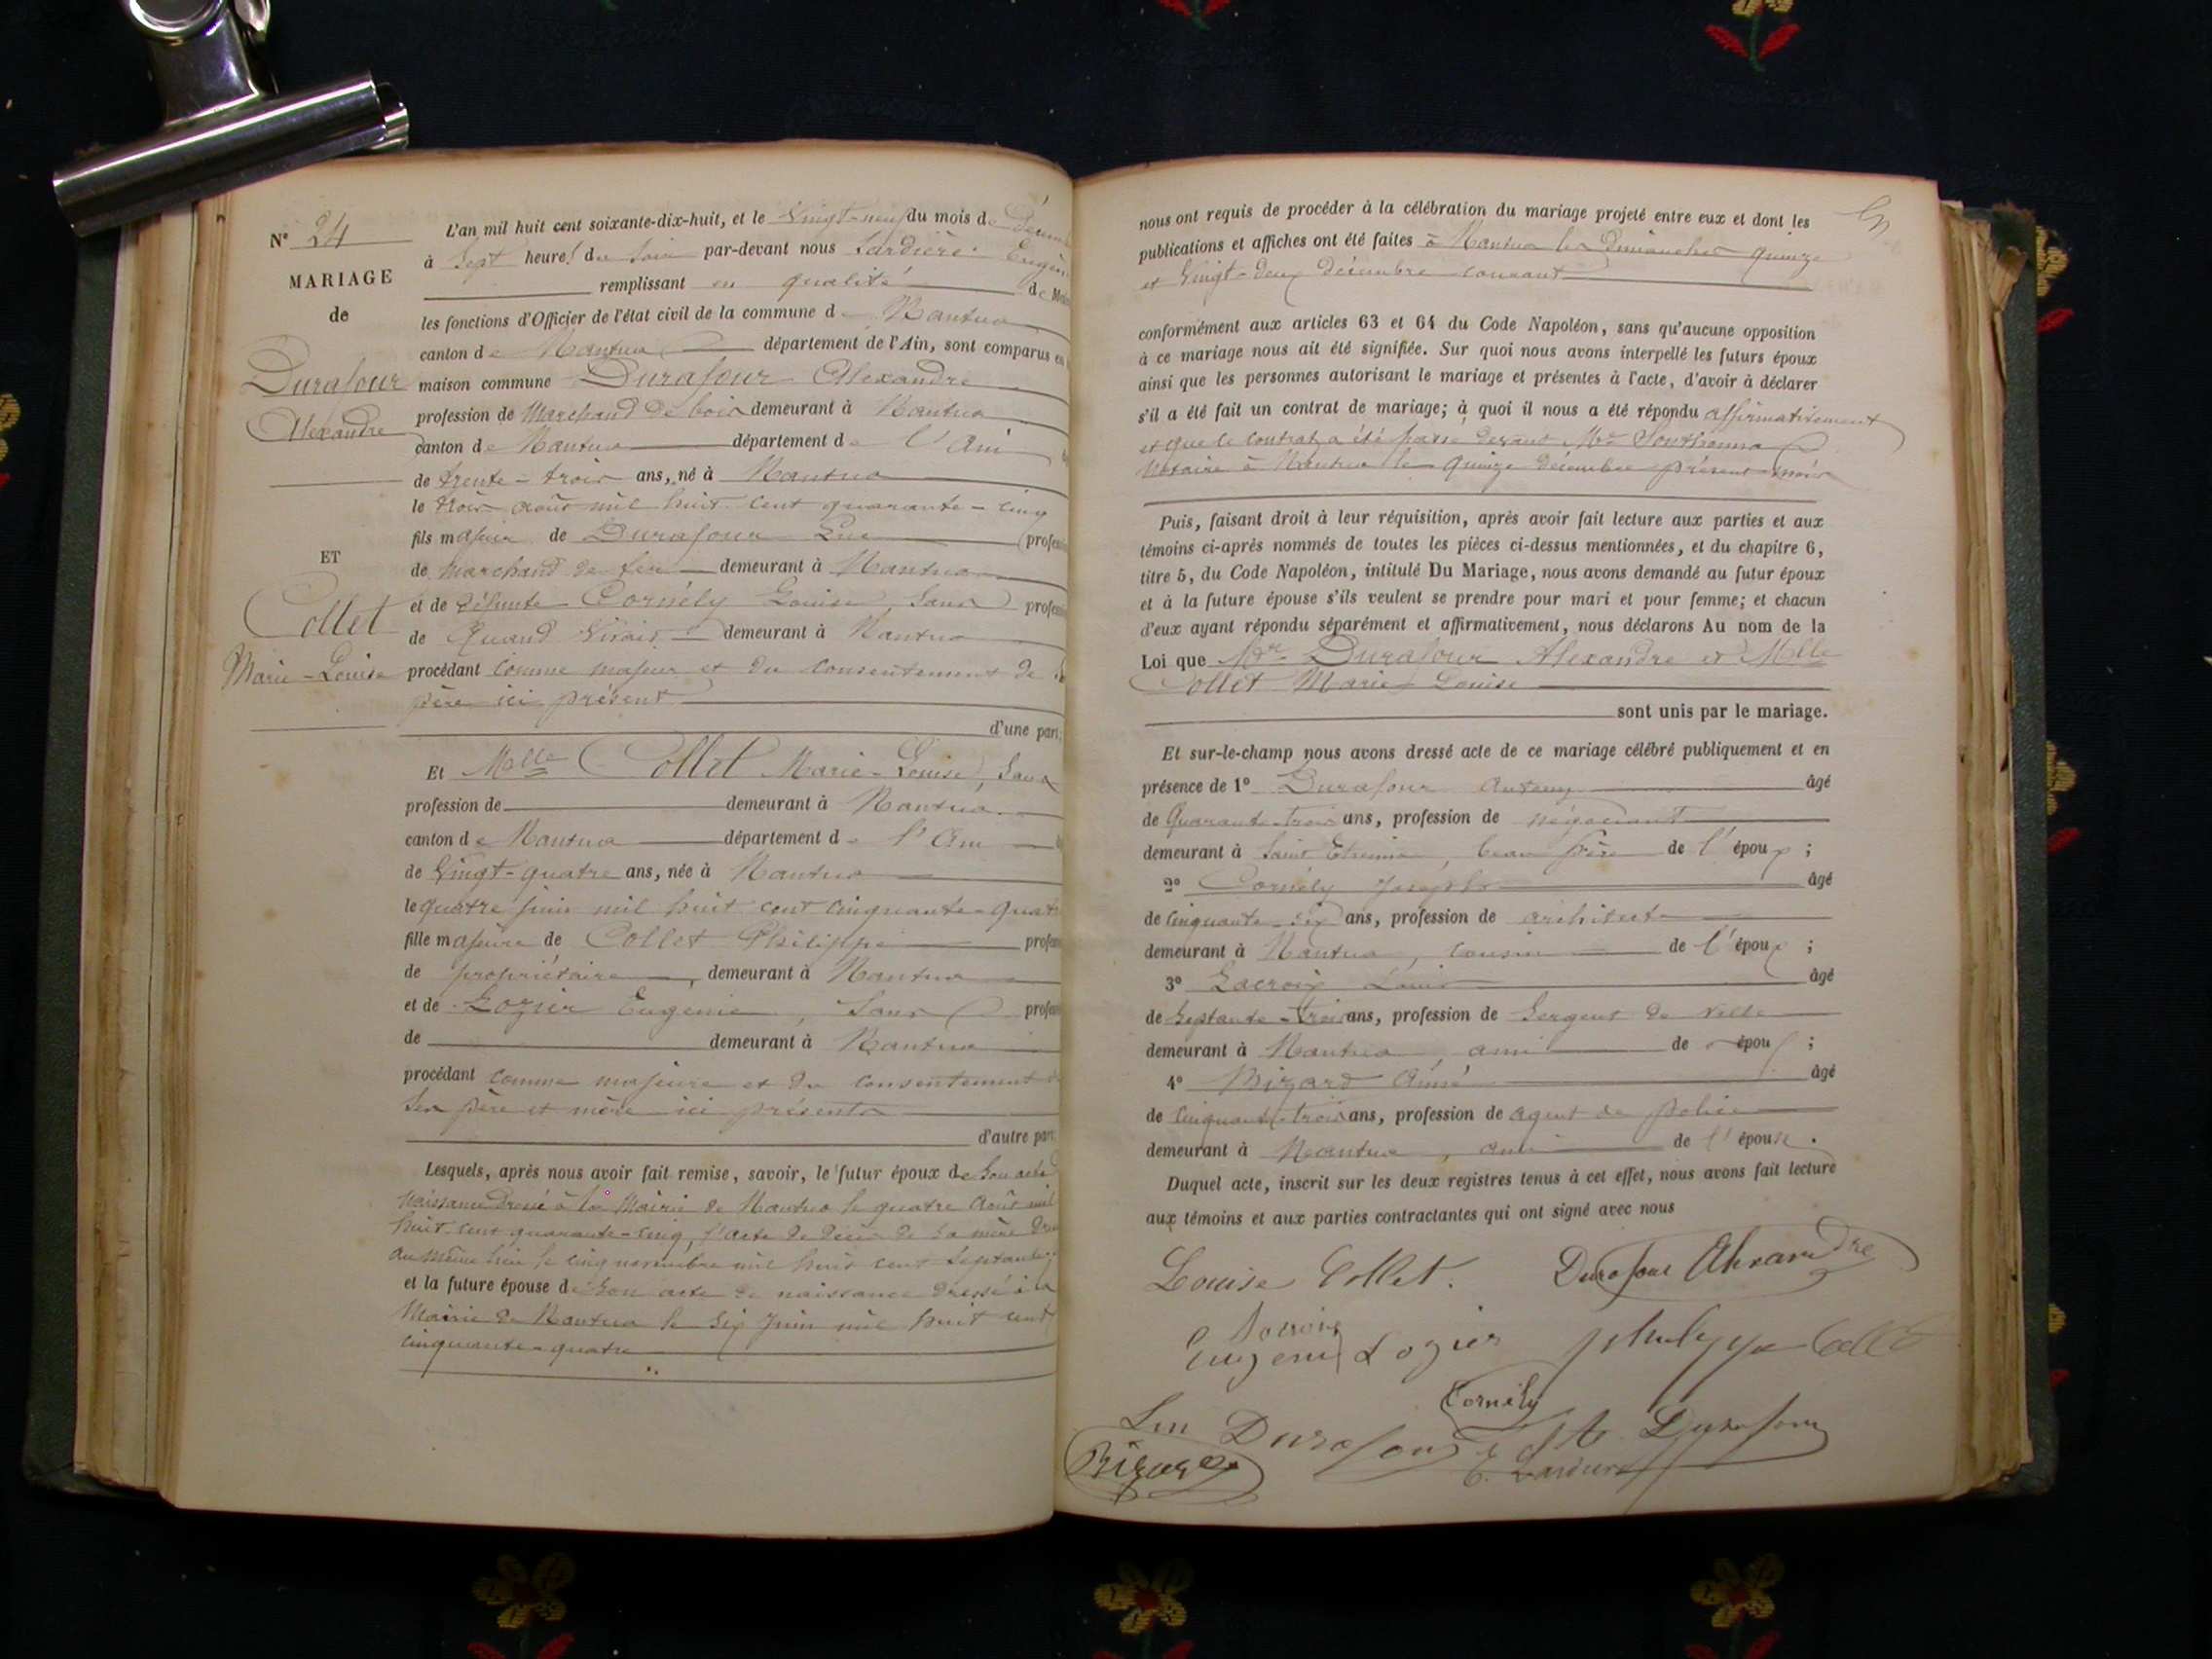 N° 24
MARIAGE
de
Durafour
Alexandre
ET
Collet
Marie-Louise
L'an mil huit cent soixante-dix-huit, et le Vingt-neuf du mois de
à Sept heures du Soir par-devant nous Lardière Eugène
remplissant en qualité de
les fonctions d'Officier de l'état civil de la commune de Nantua
canton de Nantua département de l'Ain, sont comparus en
maison commune Durafour Alexandre
profession de Marchand de bois demeurant à Nantua
canton de Nantua département de l'Ain
de trente-trois ans, né à Nantua
le trois août mil huit cent quarante-cinq
fils majeur de Durafour Luc
de marchand de fer demeurant à Nantua
et de défunte Cornély Louise, Sans
de Quand Vivait demeurant à Nantua
procédant comme majeur et du consentement de
père ici présent
d'une part;
Et Melle Collet Marie-Louise, Sans
profession de demeurant à Nantua
canton de Nantua département de l'Ain
de Vingt-quatre ans, née à Nantua
le quatre juin mil huit cent cinquante-quatre
fille majeure de Collet Philippe
de propriétaire, demeurant à Nantua
et de Lozier Eugénie, Sans
de demeurant à Nantua
procédant comme majeure et du consentement de
Ses père et mère ici présents
d'autre part
Lesquels, après nous avoir fait remise, savoir, le futur époux de Son acte
naissance dressé à la Mairie de Nantua le quatre Août mil
huit cent quarante-cinq, l'acte de décès de sa mère
au même lieu le cinq novembre mil huit cent septante
et la future épouse de Son acte de naissance dressé à la
Mairie de Nantua le Six Juin mil huit cent
cinquante-quatre
nous ont requis de procéder à la célébration du mariage projeté entre eux et dont les
publications et affiches ont été faites à Nantua les Dimanches quinze
et Vingt-deux Décembre courant
conformément aux articles 63 et 64 du Code Napoléon, sans qu'aucune opposition
à ce mariage nous ait été signifiée. Sur quoi nous avons interpellé les futurs époux
ainsi que les personnes autorisant le mariage et présentes à l'acte, d'avoir à déclarer
s'il a été fait un contrat de mariage; à quoi il nous a été répondu affirmativement
et que le contrat a été passé devant Me Sonthonna
Notaire à Nantua le quinze décembre présent mois
Puis, faisant droit à leur réquisition, après avoir fait lecture aux parties et aux
témoins ci-après nommés de toutes les pièces ci-dessus mentionnées, et du chapitre 6,
titre 5, du Code Napoléon, intitulé Du Mariage, nous avons demandé au futur époux
et à la future épouse s'ils veulent se prendre pour mari et pour femme; et chacun
d'eux ayant répondu séparément et affirmativement, nous déclarons Au nom de la
Loi que Mr Durafour Alexandre et Melle
Collet Marie-Louise
sont unis par le mariage.
Et sur-le-champ nous avons dressé acte de ce mariage célébré publiquement et en
présence de 1° Durafour Antony âgé
de Quarante-trois ans, profession de négociant
demeurant à Saint Etienne, beau frère de l'époux ;
2° Cornély Joseph âgé
de Cinquante-six ans, profession de architecte
demeurant à Nantua, cousin de l'époux ;
3° Lacroix Louis âgé
de Septante-trois ans, profession de Sergent de ville
demeurant à Nantua, ami de épou ;
4° Bizard Aimé âgé
de Cinquante-trois ans, profession de agent de police
demeurant à Nantua, ami de l'épouse.
Duquel acte, inscrit sur les deux registres tenus à cet effet, nous avons fait lecture
aux témoins et aux parties contractantes qui ont signé avec nous
Louise Collet. Durafour Alexandre
Lacroix
Eugénie Lozier Philippe Collet
Cornély
Luc Durafour Durafour
Bizard E. Lardière